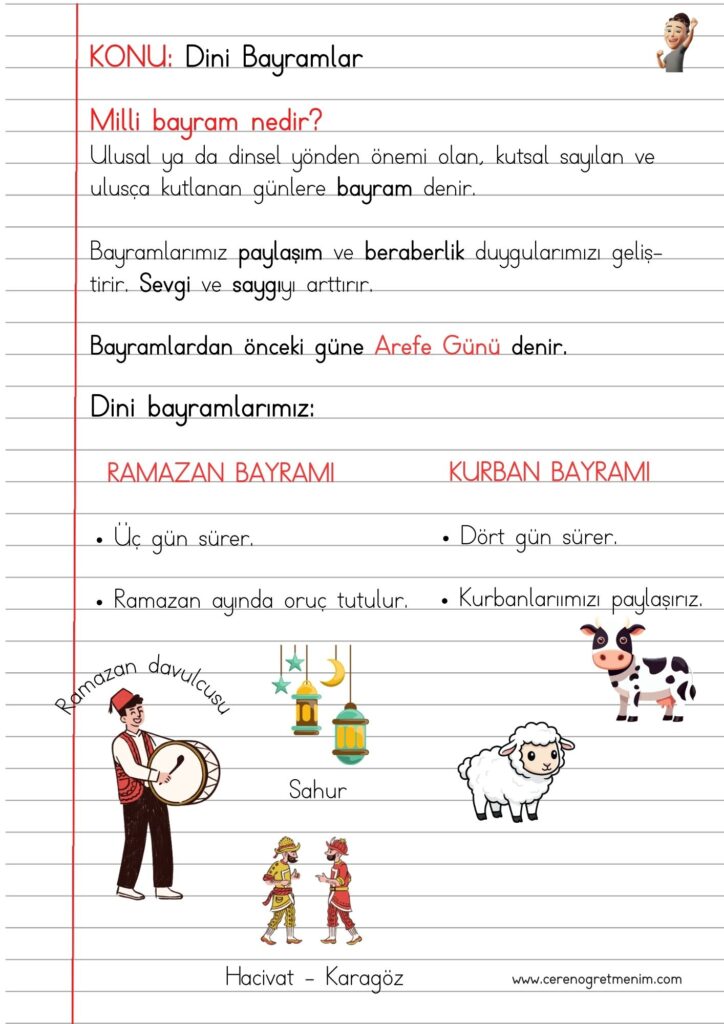 KONU: Dini Bayramlar
Milli bayram nedir?
Ulusal ya da dinsel yönden önemi olan, kutsal sayılan ve
ulusça kutlanan günlere bayram denir.
Bayramlarımız paylaşım ve beraberlik duygularımızı geliş-
tirir. Sevgi ve saygıyı arttırır.
Bayramlardan önceki güne Arefe Günü denir.
Dini bayramlarımız:
RAMAZAN BAYRAMI
• Üç gün sürer.
• Ramazan ayında oruç tutulur.
KURBAN BAYRAMI
• Dört gün sürer.
• Kurbanlarıımızı paylaşırız.
Ramazan davulcusu
Sahur
Hacivat - Karagöz
www.cerenogretmenim.com